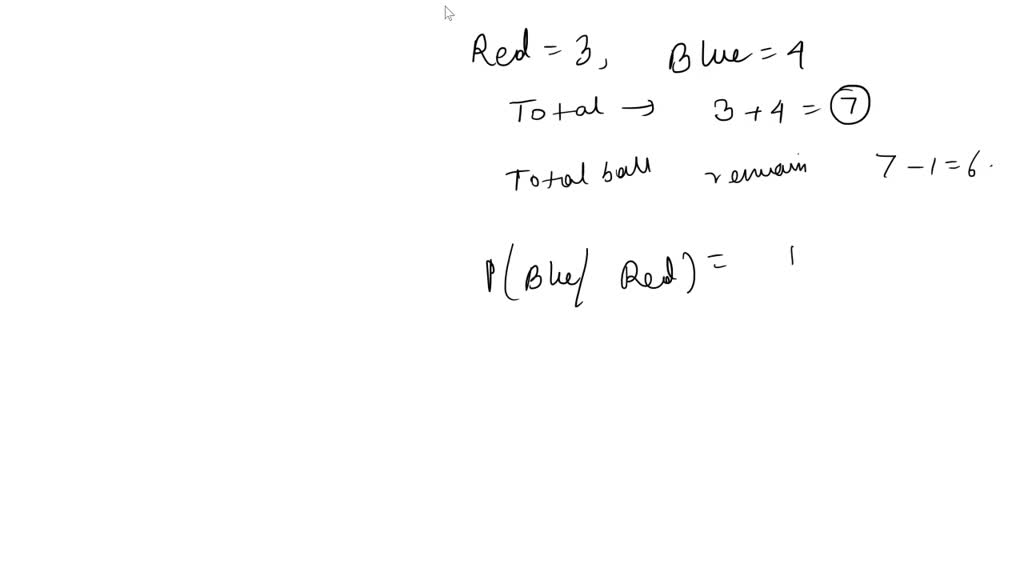 Red = 3, Blue = 4
Total → 3 + 4 = 7
Total ball remain 7 - 1 = 6.
P(Blue/ Red) =